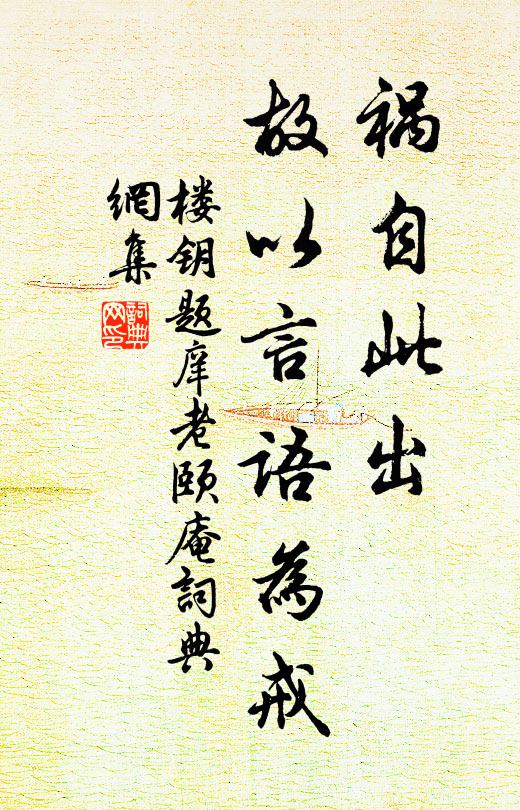 祸自此出
故以言语為戒
楼钥题庠老颐庵詞典
網集
詞典
网印